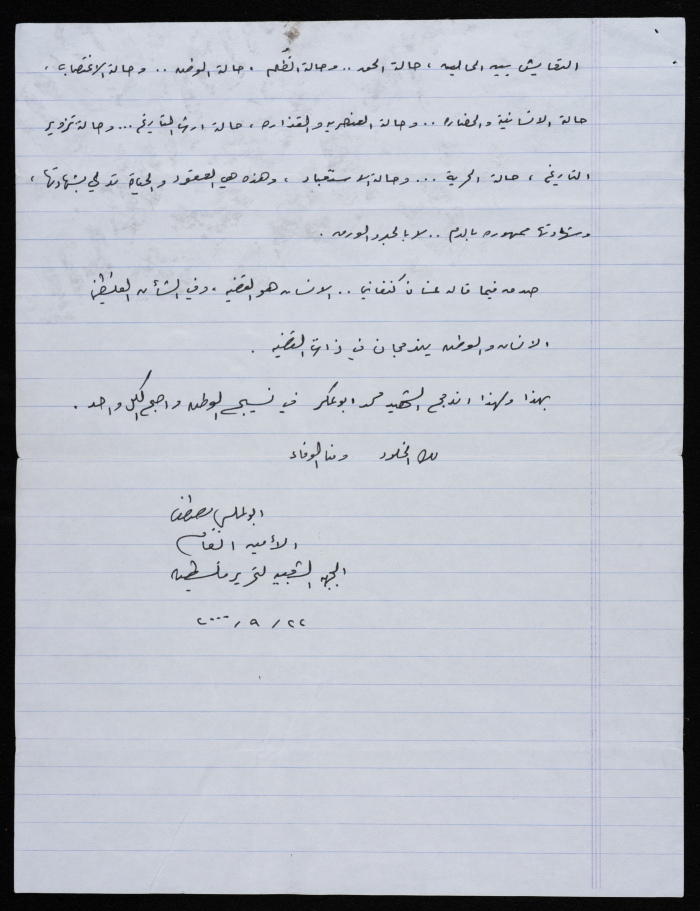 التعايش بين الحالين ، حالة الحق .. وحالة الظُلم ، حالة الوطن .. وحالة الاغتصاب ،
حالة الانسانية والحضاره .. وحالة العنصريه والقذاره ، حالة ارث التاريخ ... وحالة تزوير
التاريخ ، حالة الحرية ... وحالة الاستعباد ، وهذه هي العقود والحياة تدلي بشهادتها ،
وشهادتها ممهوره بالدم .. لا بالحبر والورق .
صدق فيما قاله غسان كنفاني .. الانسان هو القضيه ، وفي الشأن الفلسطيني
الانسان والوطن يندمجان في ذات القضيه .
بهذا ولهذا اندمج الشهيد محمد ابو عكر في نسيج الوطن واصبح الكل واحد .
لك الخلود ومنا الوفاء
ابو علي مصطفى
الأمين العام
الجبهه الشعبيه لتحرير فلسطين
٢٢ / ٩ / ٢٠٠٠